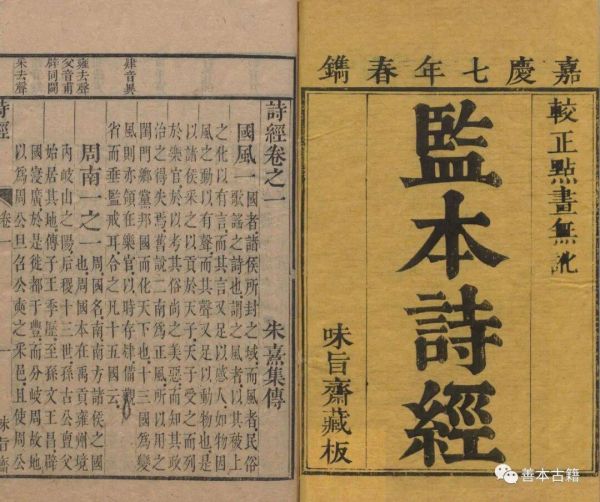 嘉慶七年春鐫
較正點畫無訛
監本詩經
味旨齋藏板
肄音異
雍去聲
父音甫
辟同闢
采去聲
詩經卷之一 朱熹集傳
國風一 國者諸侯所封之域而風者民俗
歌謠之詩也謂之風者以其被上
之化以有言而其言又足以感人如物因
風之動以有聲而其聲又足以動物也是
以諸侯采之以貢於天子天子受之而列
於樂官於以考其俗尚之美惡而知其政
治之得失焉舊說二南爲正風所以用之
閨門鄉黨邦國而化天下也十三國爲變
風則亦領在樂官以時存肄備觀
省而垂監戒耳合之凡十五國云
周南一之一 周國名南南方諸侯之國
也周國本在禹貢雍州境
內岐山之陽后稷十三世孫古公亶父
始居其地傳子王季歷至孫文王昌辟
國寖廣於是徙都于豐而分岐周故地
以爲周公旦召公奭之采邑且使周公
詩經 卷一 一 味旨齋
善本古籍